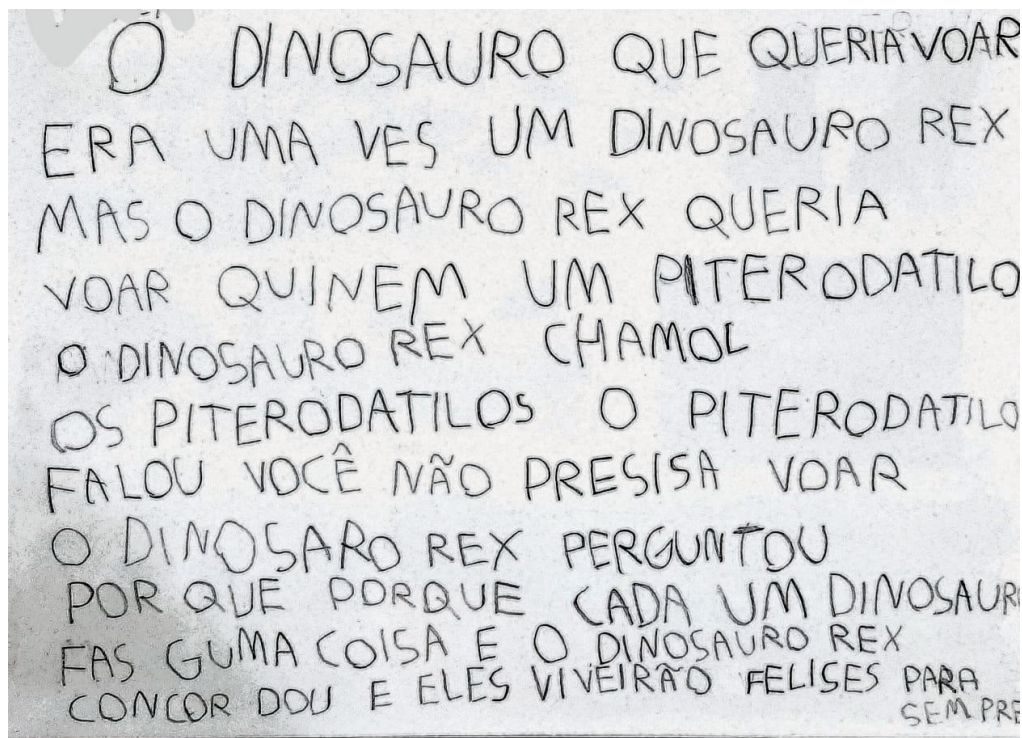 O DINOSAURO QUE QUERIA VOAR
ERA UMA VES UM DINOSAURO REX
MAS O DINOSAURO REX QUERIA
VOAR QUINEM UM PITERODATILO
O DINOSAURO REX CHAMOL
OS PITERODATILOS O PITERODATILO
FALOU VOCÊ NÃO PRESISA VOAR
O DINOSARO REX PERGUNTOU
POR QUE PORQUE CADA UM DINOSAURO
FAS GUMA COISA E O DINOSAURO REX
CONCOR DOU E ELES VIVEIRÃO FELISES PARA
SEM PRE